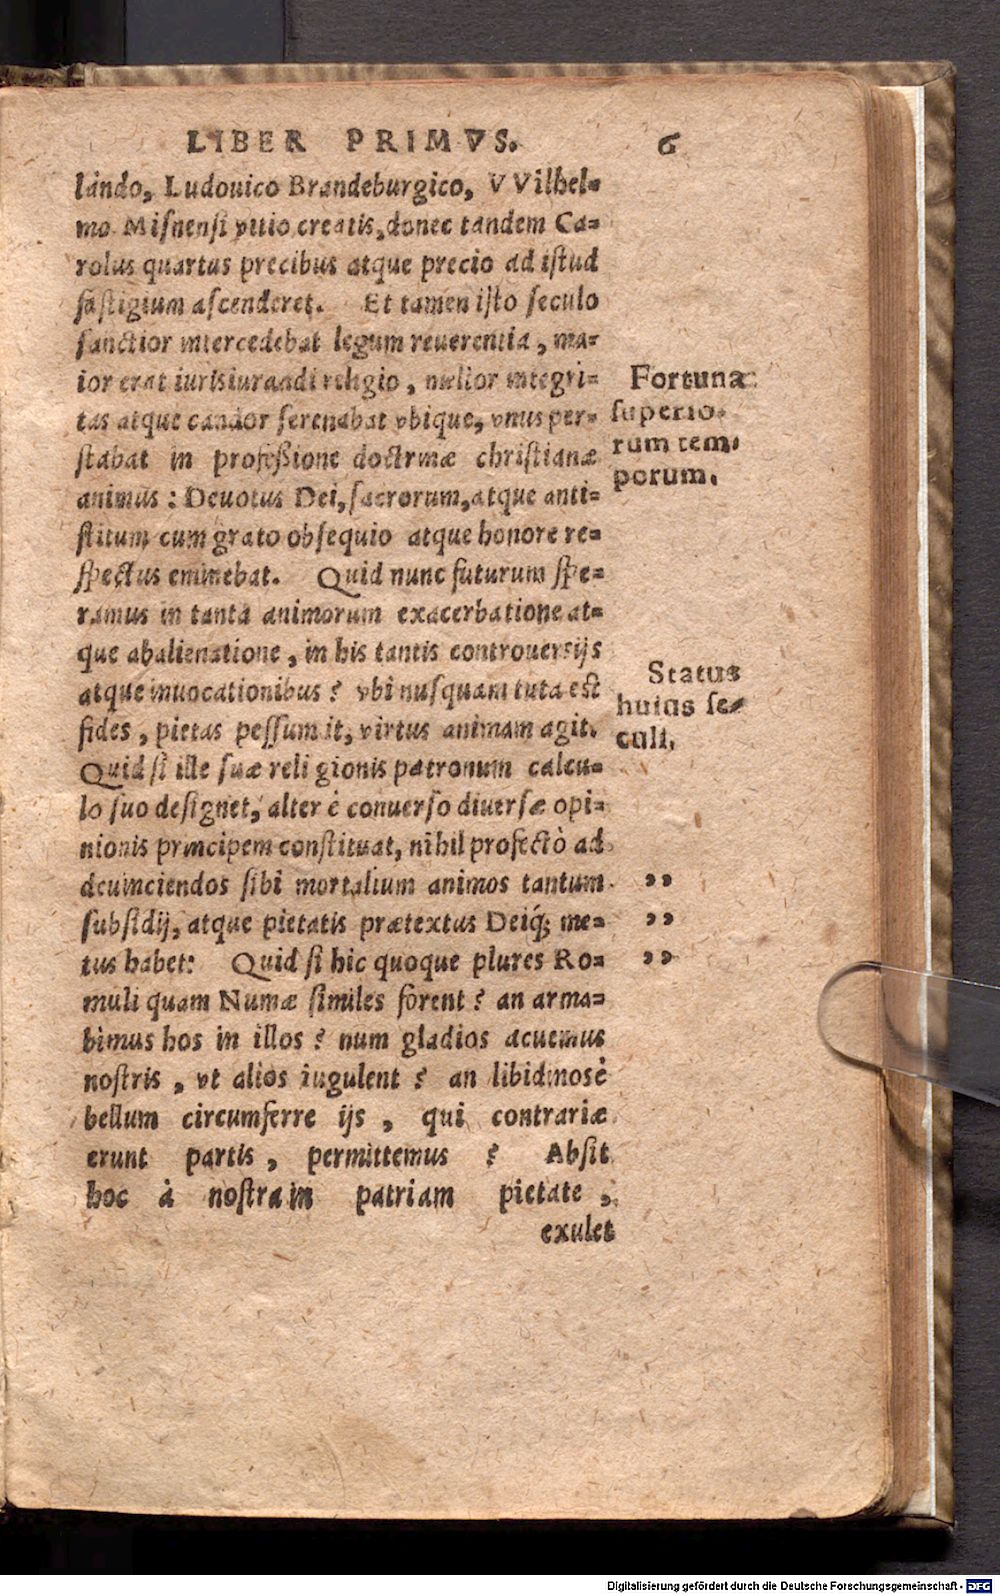 LIBER PRIMVS. 6
lando, Ludouico Brandeburgico, VVilhel-
mo Misnensi vitio creatis, donec tandem Ca-
rolus quartus precibus atque precio ad istud
fastigium ascenderet. Et tamen isto seculo
sanctior intercedebat legum reuerentia, ma-
ior erat iurisiurandi religio, melior integri-
tas atque candor serenabat vbique, vnus per-
stabat in professione doctrinæ christianæ
animus: Deuotus Dei, sacrorum, atque anti-
stitum cum grato obsequio atque honore re-
spectus eminebat. Quid nunc futurum spe-
ramus in tanta animorum exacerbatione at-
que abalienatione, in his tantis controuersijs
atque inuocationibus? vbi nusquam tuta est
fides, pietas pessum it, virtus animam agit.
Quid si ille suæ religionis patronum calcu-
lo suo designet, alter è conuerso diuersæ opi-
nionis principem constituat, nihil profectò ad
deuinciendos sibi mortalium animos tantum
subsidij, atque pietatis prætextus Deiq́; me-
tus habet: Quid si hic quoque plures Ro-
muli quam Numæ similes forent? an arma-
bimus hos in illos? num gladios acuemus
nostris, vt alios iugulent? an libidinosè
bellum circumferre ijs, qui contrariæ
erunt partis, permittemus? Absit
hoc à nostra in patriam pietate,
exulet
Fortunæ
superio-
rum tem-
porum.
Status
huius se-
culi.
,,
,,
,,
Digitalisierung gefördert durch die Deutsche Forschungsgemeinschaft - DFG